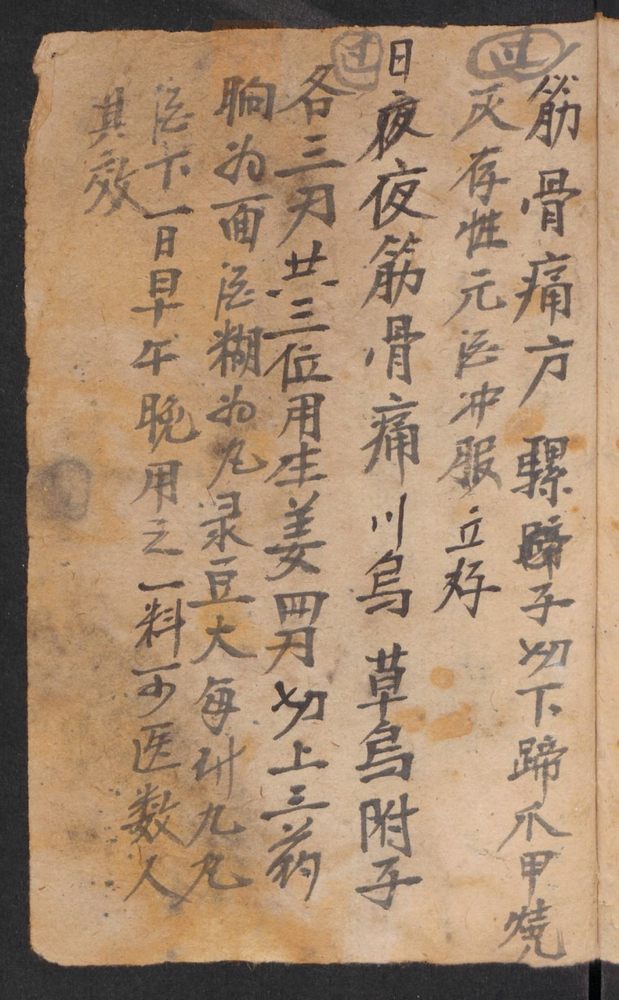 筋骨痛方 騾蹄子切下蹄爪甲燒
灰存性元酒冲服立好
日夜夜筋骨痛川烏 草烏附子
各三刃共三位用生姜四刃切上三药
晌为面酒糊为凡录豆大每卅九凡
酒下一日早午晚用之一料可医数人
其效